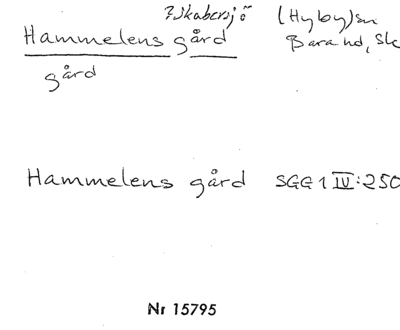 ?Skabersjö (Hyby)sn
Hammelens gård Bara hd, Sk
gård
Hammelens gård SGG 1 IV:250
Nr 15795